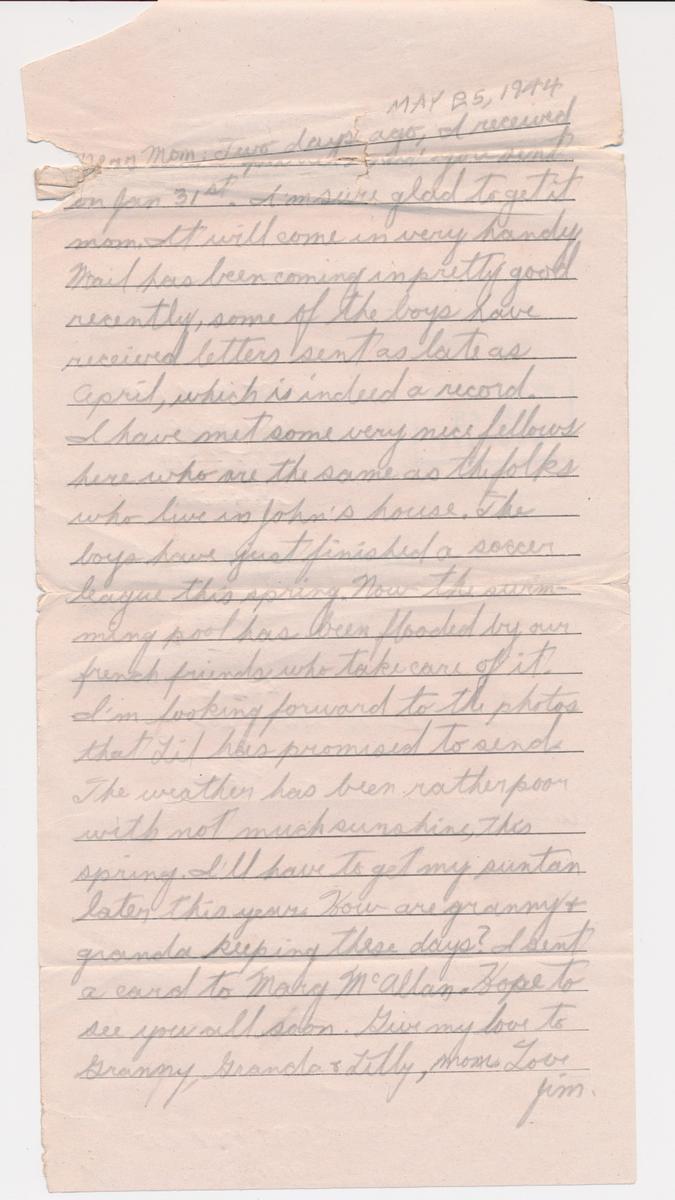 MAY 25, 1944
Dear Mom: Two days ago, I received
you sent
on Jan 31st. I'm sure glad to get it
mom. It will come in very handy
Mail has been coming in pretty good
recently, some of the boys have
received letters sent as late as
April, which is indeed a record.
I have met some very nice fellows
here who are the same as the folks
who live in John's house. The
boys have just finished a soccer
league this spring. Now the swim-
ming pool has been flooded by our
french friends who take care of it.
I'm looking forward to the photos
that Lil has promised to send.
The weather has been rather poor
with not much sunshine, this
spring. I'll have to get my suntan
later this year. How are granny &
granda keeping these days? I sent
a card to Mary McAllan. Hope to
see you all soon. Give my love to
Granny, Granda & Lilly, mom. Love
Jim.